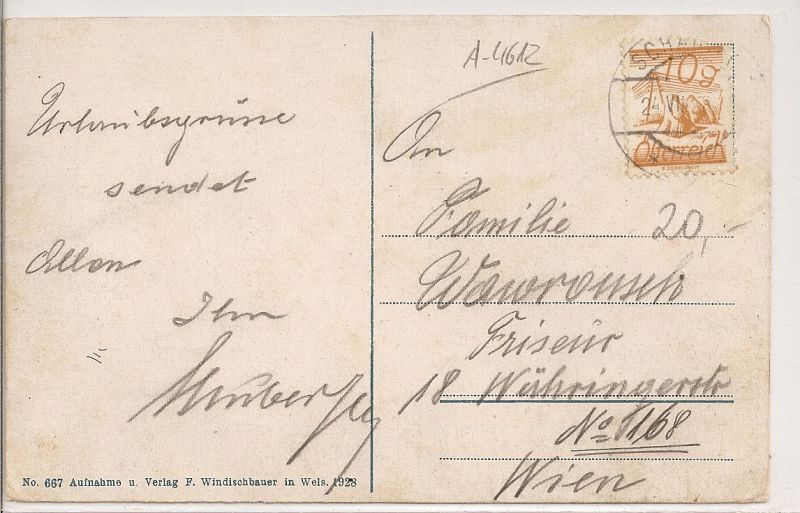 A-4612
Urlaubsgrüsse
sendet
Allen
Ihr
No. 667 Aufnahme u. Verlag F. Windischbauer in Wels. 1928
10g
24.VII
Österreich
An
Familie 20,-
Friseur
18 Währingerstr
No 168
Wien